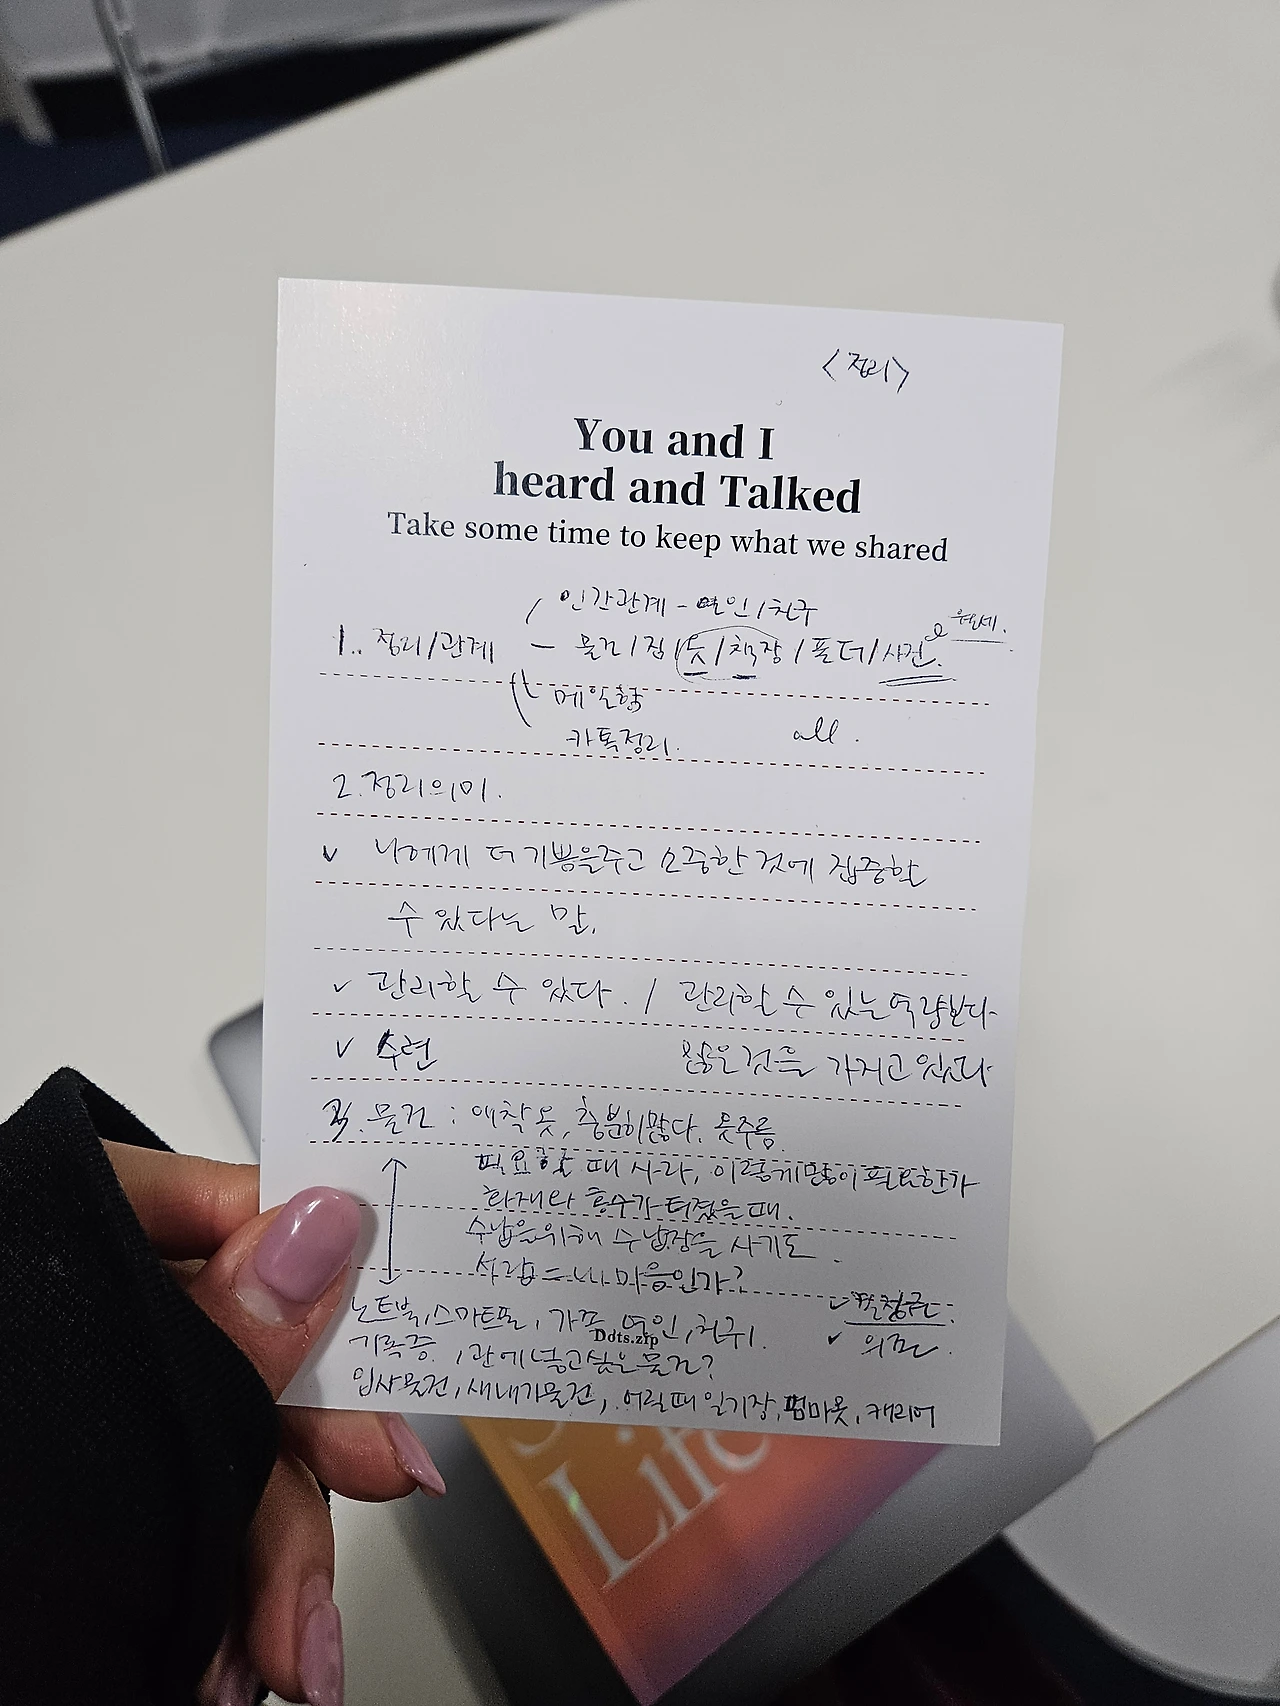 <정리>
You and I
heard and Talked
Take some time to keep what we shared
인간관계 - 연인/친구
1.. 정리/관계 - 물건/집/옷/책장/폴더/사진.
메일함
카톡정리. all.
2. 정리의미.
v 나에게 더 기쁨을주고 소중한 것에 집중할
수 있다는 말.
v 관리할 수 있다. / 관리할 수 있는 역량보다
v 수련 많은것을 가지고있다
3. 물건 : 애착옷, 충분히많다. 옷주름
필요할 때 사라, 이렇게많이 필요한가
화재와 홍수가 터졌을때.
수납을위해 수납장을 사기도.
서랍 = 내 마음인가?
노트북, 스마트폰, 가족, 연인, 친구.
기록증, 관에 넣고싶은 물건?
Ddts.zip
입사물건, 새내기물건, 어릴때 일기장, 엄마옷, 캐리어